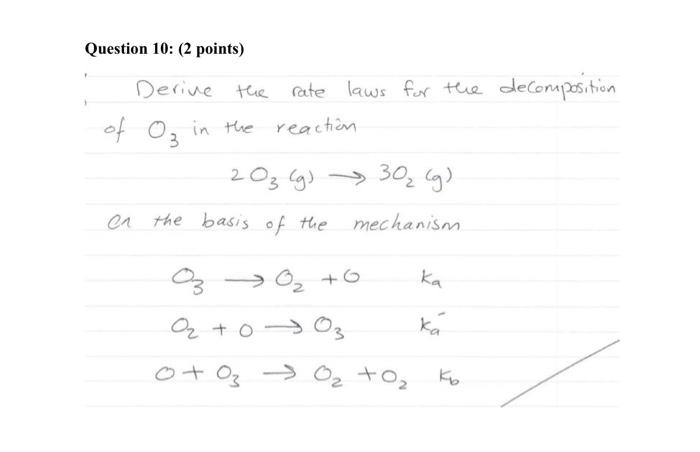 Question 10: (2 points)
Derive the rate laws for the decomposition
of O₃ in the reaction
2 O₃ (g) → 3O₂ (g)
on the basis of the mechanism
O₃ → O₂ + O ka
O₂ + O → O₃ ka⁻
O + O₃ → O₂ + O₂ kb